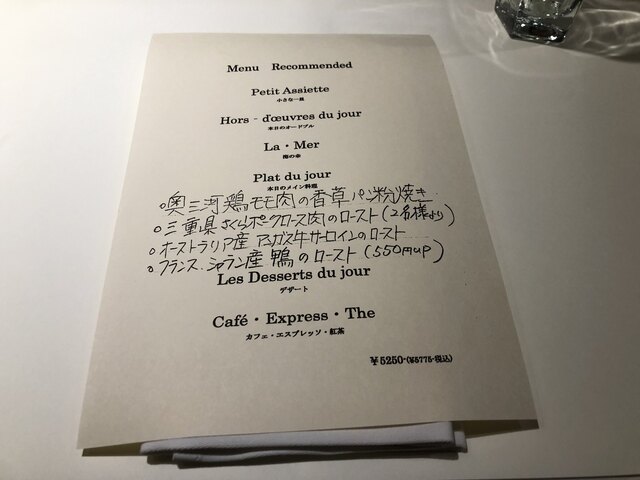 Menu Recommended
Petit Assiette
小さな一皿
Hors - d'œuvres du jour
本日のオードブル
La・Mer
海の幸
Plat du jour
本日のメイン料理
○奥三河鶏モモ肉の香草パン粉焼き
○三重県さくらポークロース肉のロースト(2名様より)
○オーストラリア産アンガス牛サーロインのロースト
○フランス、シャラン産鴨のロースト(550円up)
Les Desserts du jour
デザート
Café・Express・The
カフェ・エスプレッソ・紅茶
¥5250-(¥5775-税込)